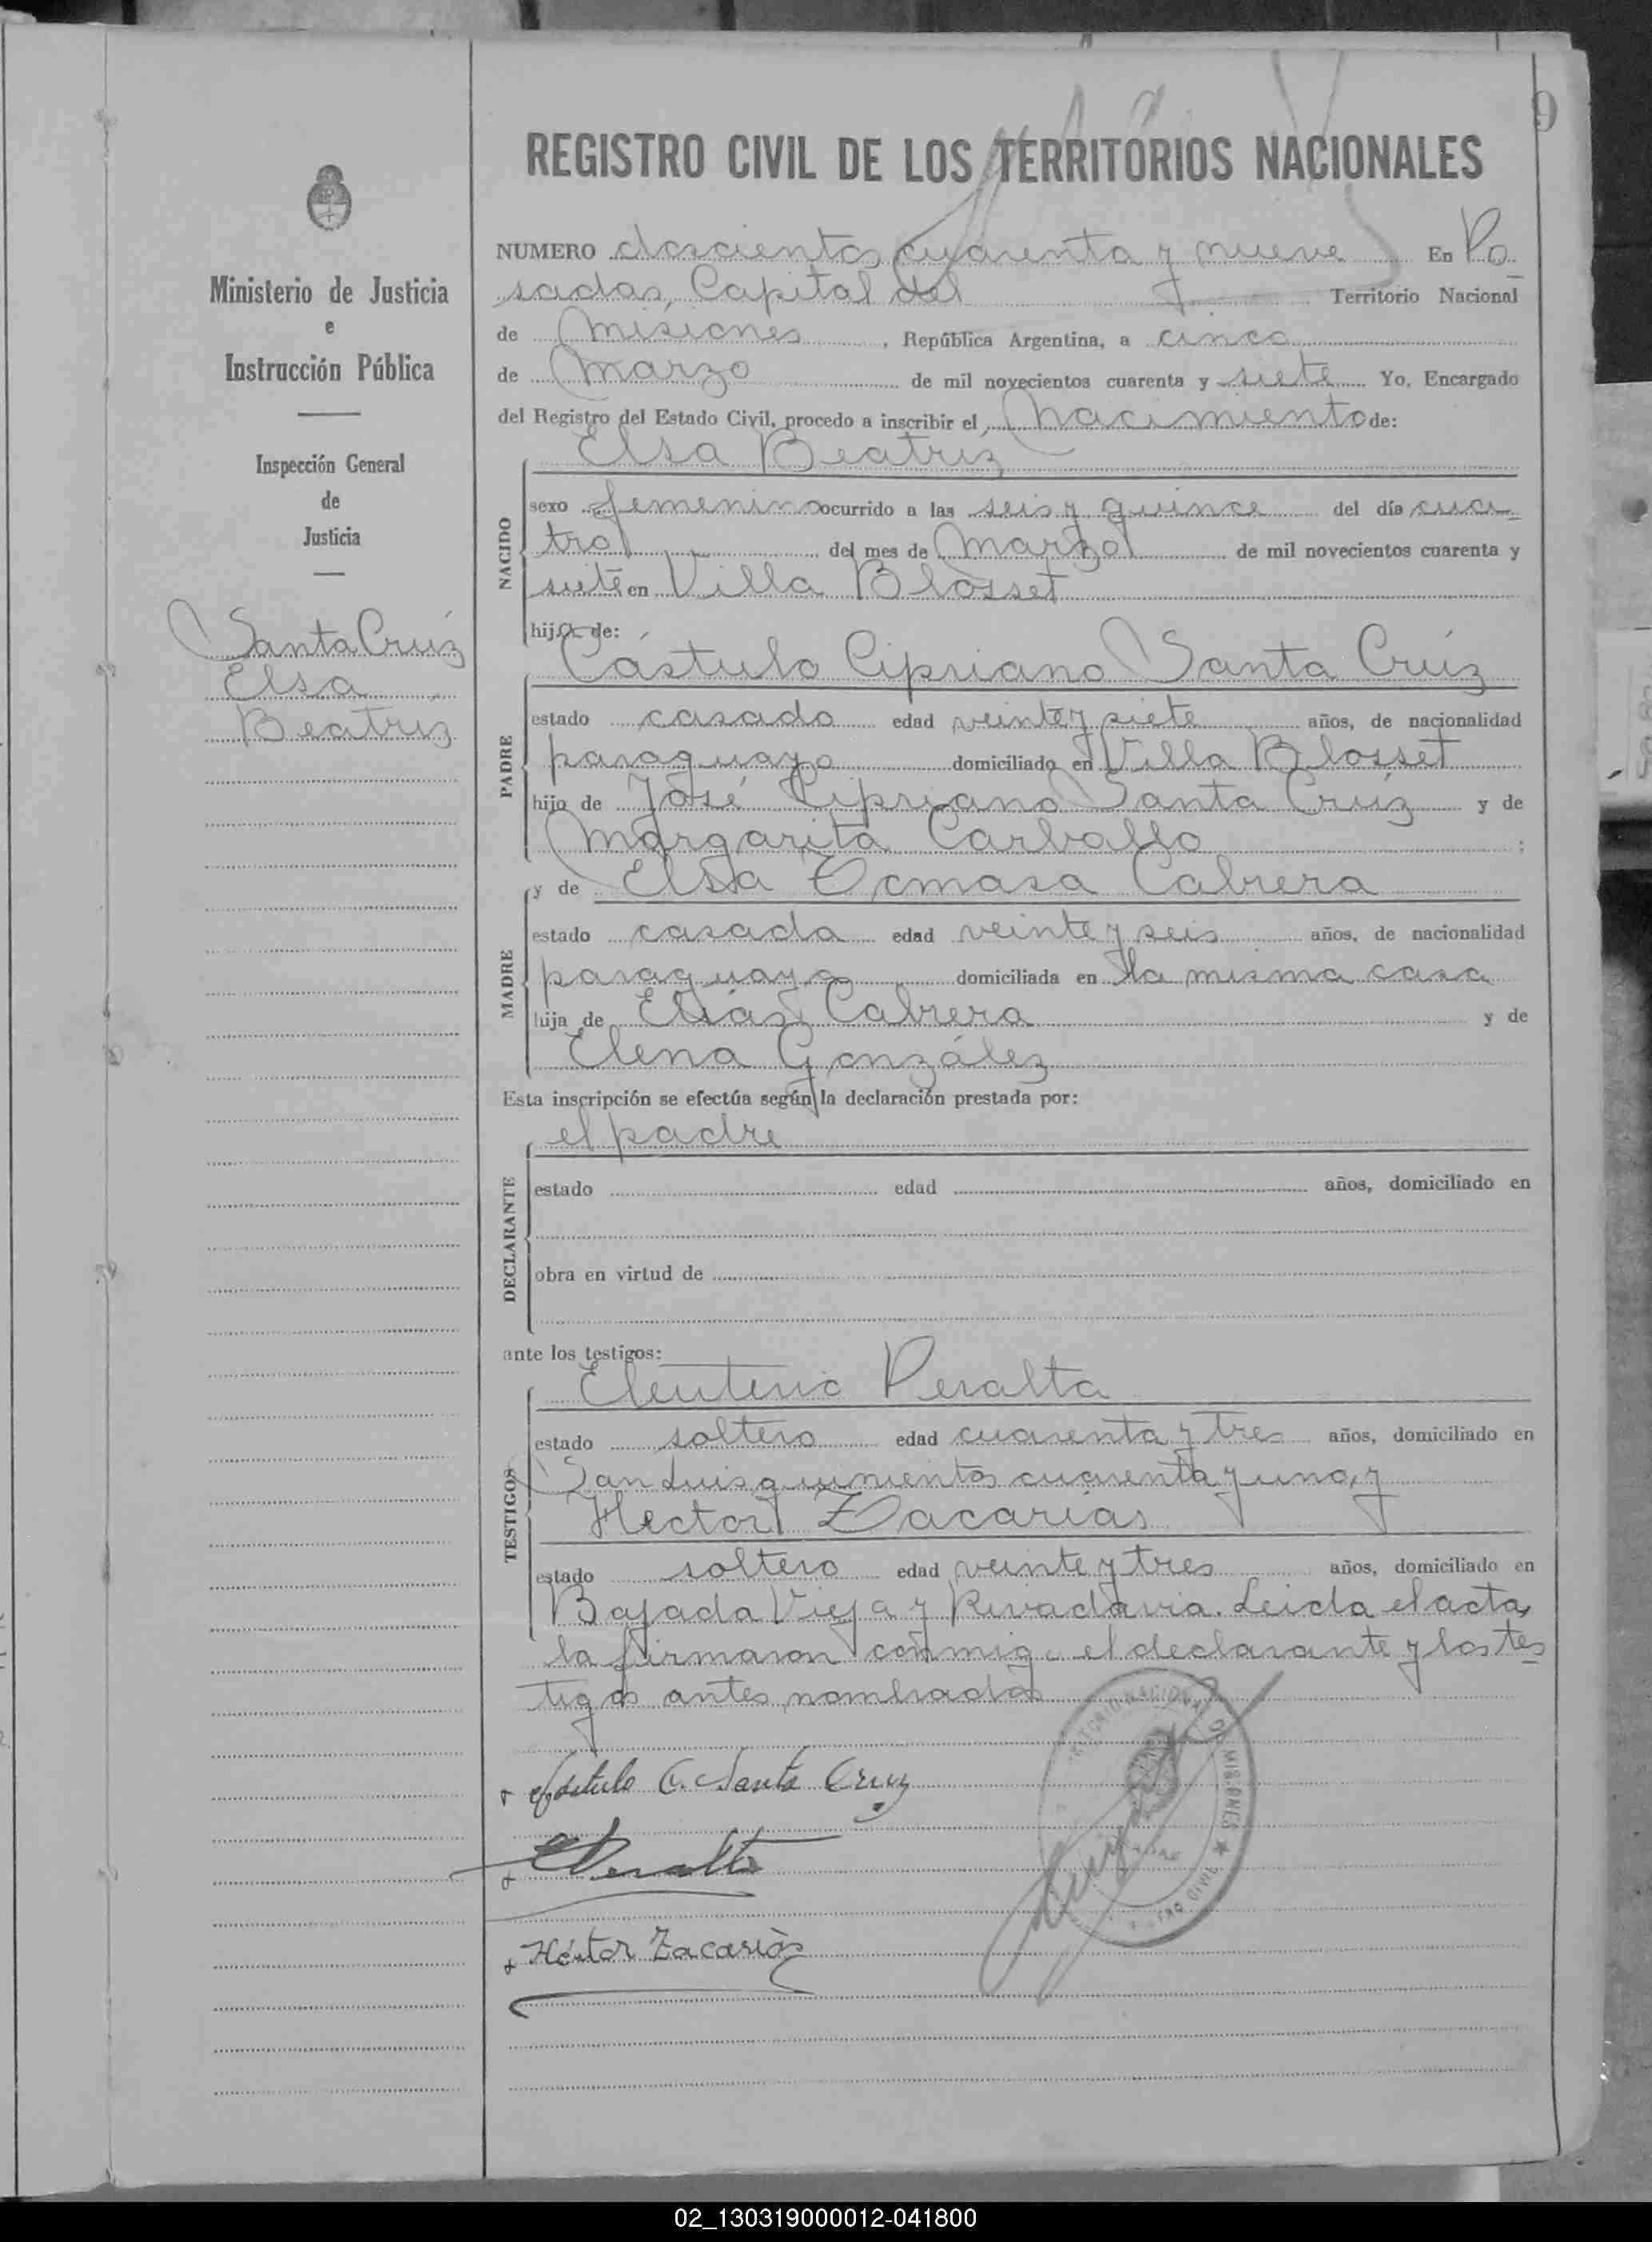 9
REGISTRO CIVIL DE LOS TERRITORIOS NACIONALES
Ministerio de Justicia
e
Instrucción Pública
Inspección General
de
Justicia
Santa Cruz
Elsa
Beatriz
NUMERO doscientos cuarenta y nueve En Po
sadas, Capital del Territorio Nacional
de Misiones, República Argentina, a cinco
de Marzo de mil novecientos cuarenta y siete Yo, Encargado
del Registro del Estado Civil, procedo a inscribir el Nacimiento de:
Elsa Beatriz
NACIDO
sexo femenino ocurrido a las seis y quince del día cua-
tro del mes de Marzo de mil novecientos cuarenta y
siete en Villa Blosset
hija de:
Cástulo Cipriano Santa Crúz
PADRE
estado casado edad veinte y siete años, de nacionalidad
paraguayo domiciliado en Villa Blosset
hijo de José Cipriano Santa Crúz y de
Margarita Carballo ;
y de Elsa Tomasa Cabrera
MADRE
estado casada edad veinte y seis años, de nacionalidad
paraguaya domiciliada en la misma casa
hija de Elías Cabrera y de
Elena González
Esta inscripción se efectúa según la declaración prestada por:
el padre
DECLARANTE
estado edad años, domiciliado en
obra en virtud de
ante los testigos:
Eleuterio Peralta
TESTIGOS
estado soltero edad cuarenta y tres años, domiciliado en
San Luis quinientos cuarenta y uno, y
Hector Zacarías
estado soltero edad veinte y tres años, domiciliado en
Bajada Vieja y Rivadavia. Leida el acta,
la firmaron conmigo el declarante y los tes
tigos antes nombrados
Cástulo C. Santa Cruz
EPeralta
Héctor Zacarías
02_130319000012-041800